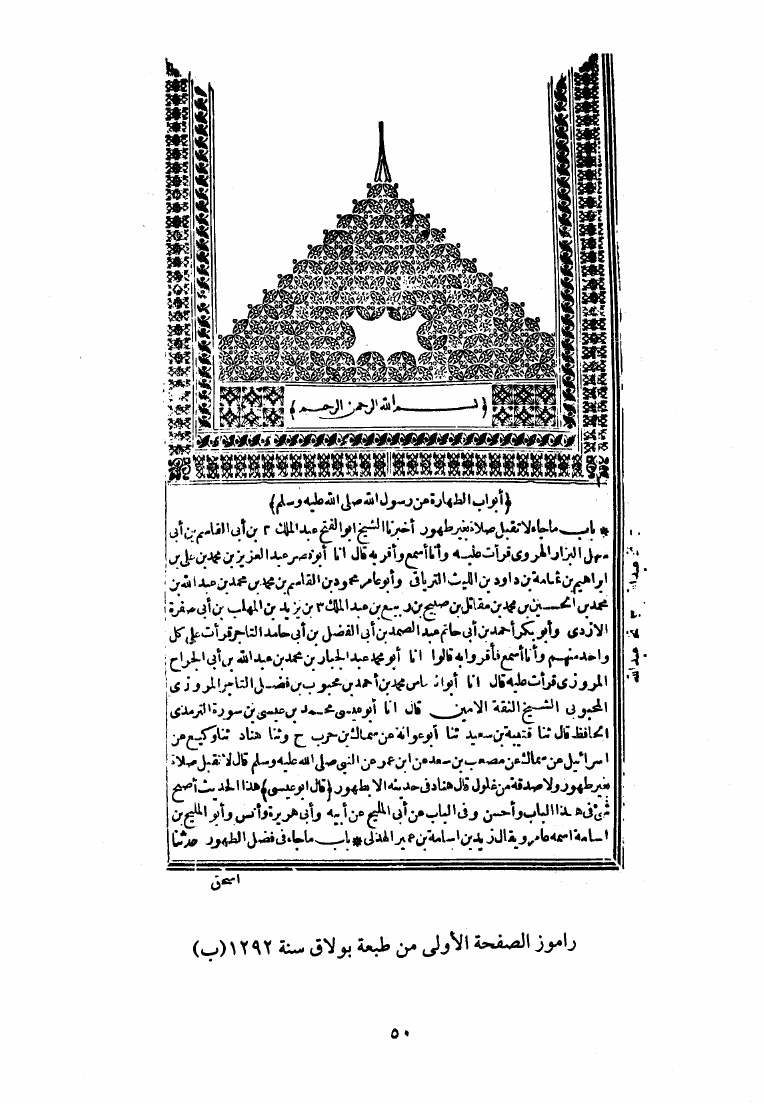 ﴿بسم الله الرحمن الرحيم﴾
﴿أبواب الطهارة عن رسول الله صلى الله عليه وسلم﴾
* باب ماجاء لا تقبل صلاة بغير طهور أخبرنا الشيخ ابو الفتح عبد الملك ٢ بن أبى القاسم بن أبى
سهل البزار الهروى قرأت عليه وأنا أسمع وأقر به قال انا أبو نصر عبد العزيز بن محمد بن على بن
ابراهيم بن ثمامة بن داود بن الليث الترياقى وأبو عامر محمود بن القاسم بن محمد بن محمد بن عبد الله بن
محمد بن الحسين بن محمد بن مقاتل بن صبيح بن ربيع بن عبد الملك ٣ بن يزيد بن المهلب بن أبى صفرة
الازدى وأبو بكر أحمد بن أبى حاتم عبد الصمد بن أبى الفضل بن أبى حامد التاجر قرأت على كل
واحد منهم وأنا أسمع فأقروا به قالوا انا أبو محمد عبد الجبار بن محمد بن عبد الله بن أبى الجراح
المروزى قرأت عليه قال انا أبو العباس محمد بن أحمد بن محبوب بن فضيل التاجر المروزى
المحبوبى الشيخ الثقة الامين قال انا أبو عيسى محمد بن عيسى بن سورة الترمذى
الحافظ قال ثنا قتيبة بن سعيد ثنا أبو عوانة عن سماك بن حرب ح وثنا هناد ثنا وكيع عن
اسرائيل عن سماك عن مصعب بن سعد عن ابن عمر عن النبى صلى الله عليه وسلم قال لا تقبل صلاة
بغير طهور ولا صدقة من غلول قال هناد فى حديثه الا بطهور ﴿قال ابو عيسى﴾ هذا الحديث أصح
شئ فى هذا الباب وأحسن وفى الباب عن أبى المليح عن أبيه وأبى هريرة وأنس وأبو المليح بن
اسامة اسمه عامر ويقال زيد بن اسامة بن عمير الهذلى * باب ماجاء فى فضل الطهور حدثنا
اسحق
راموز الصفحة الأولى من طبعة بولاق سنة ١٢٩٢ (ب)
٥٠